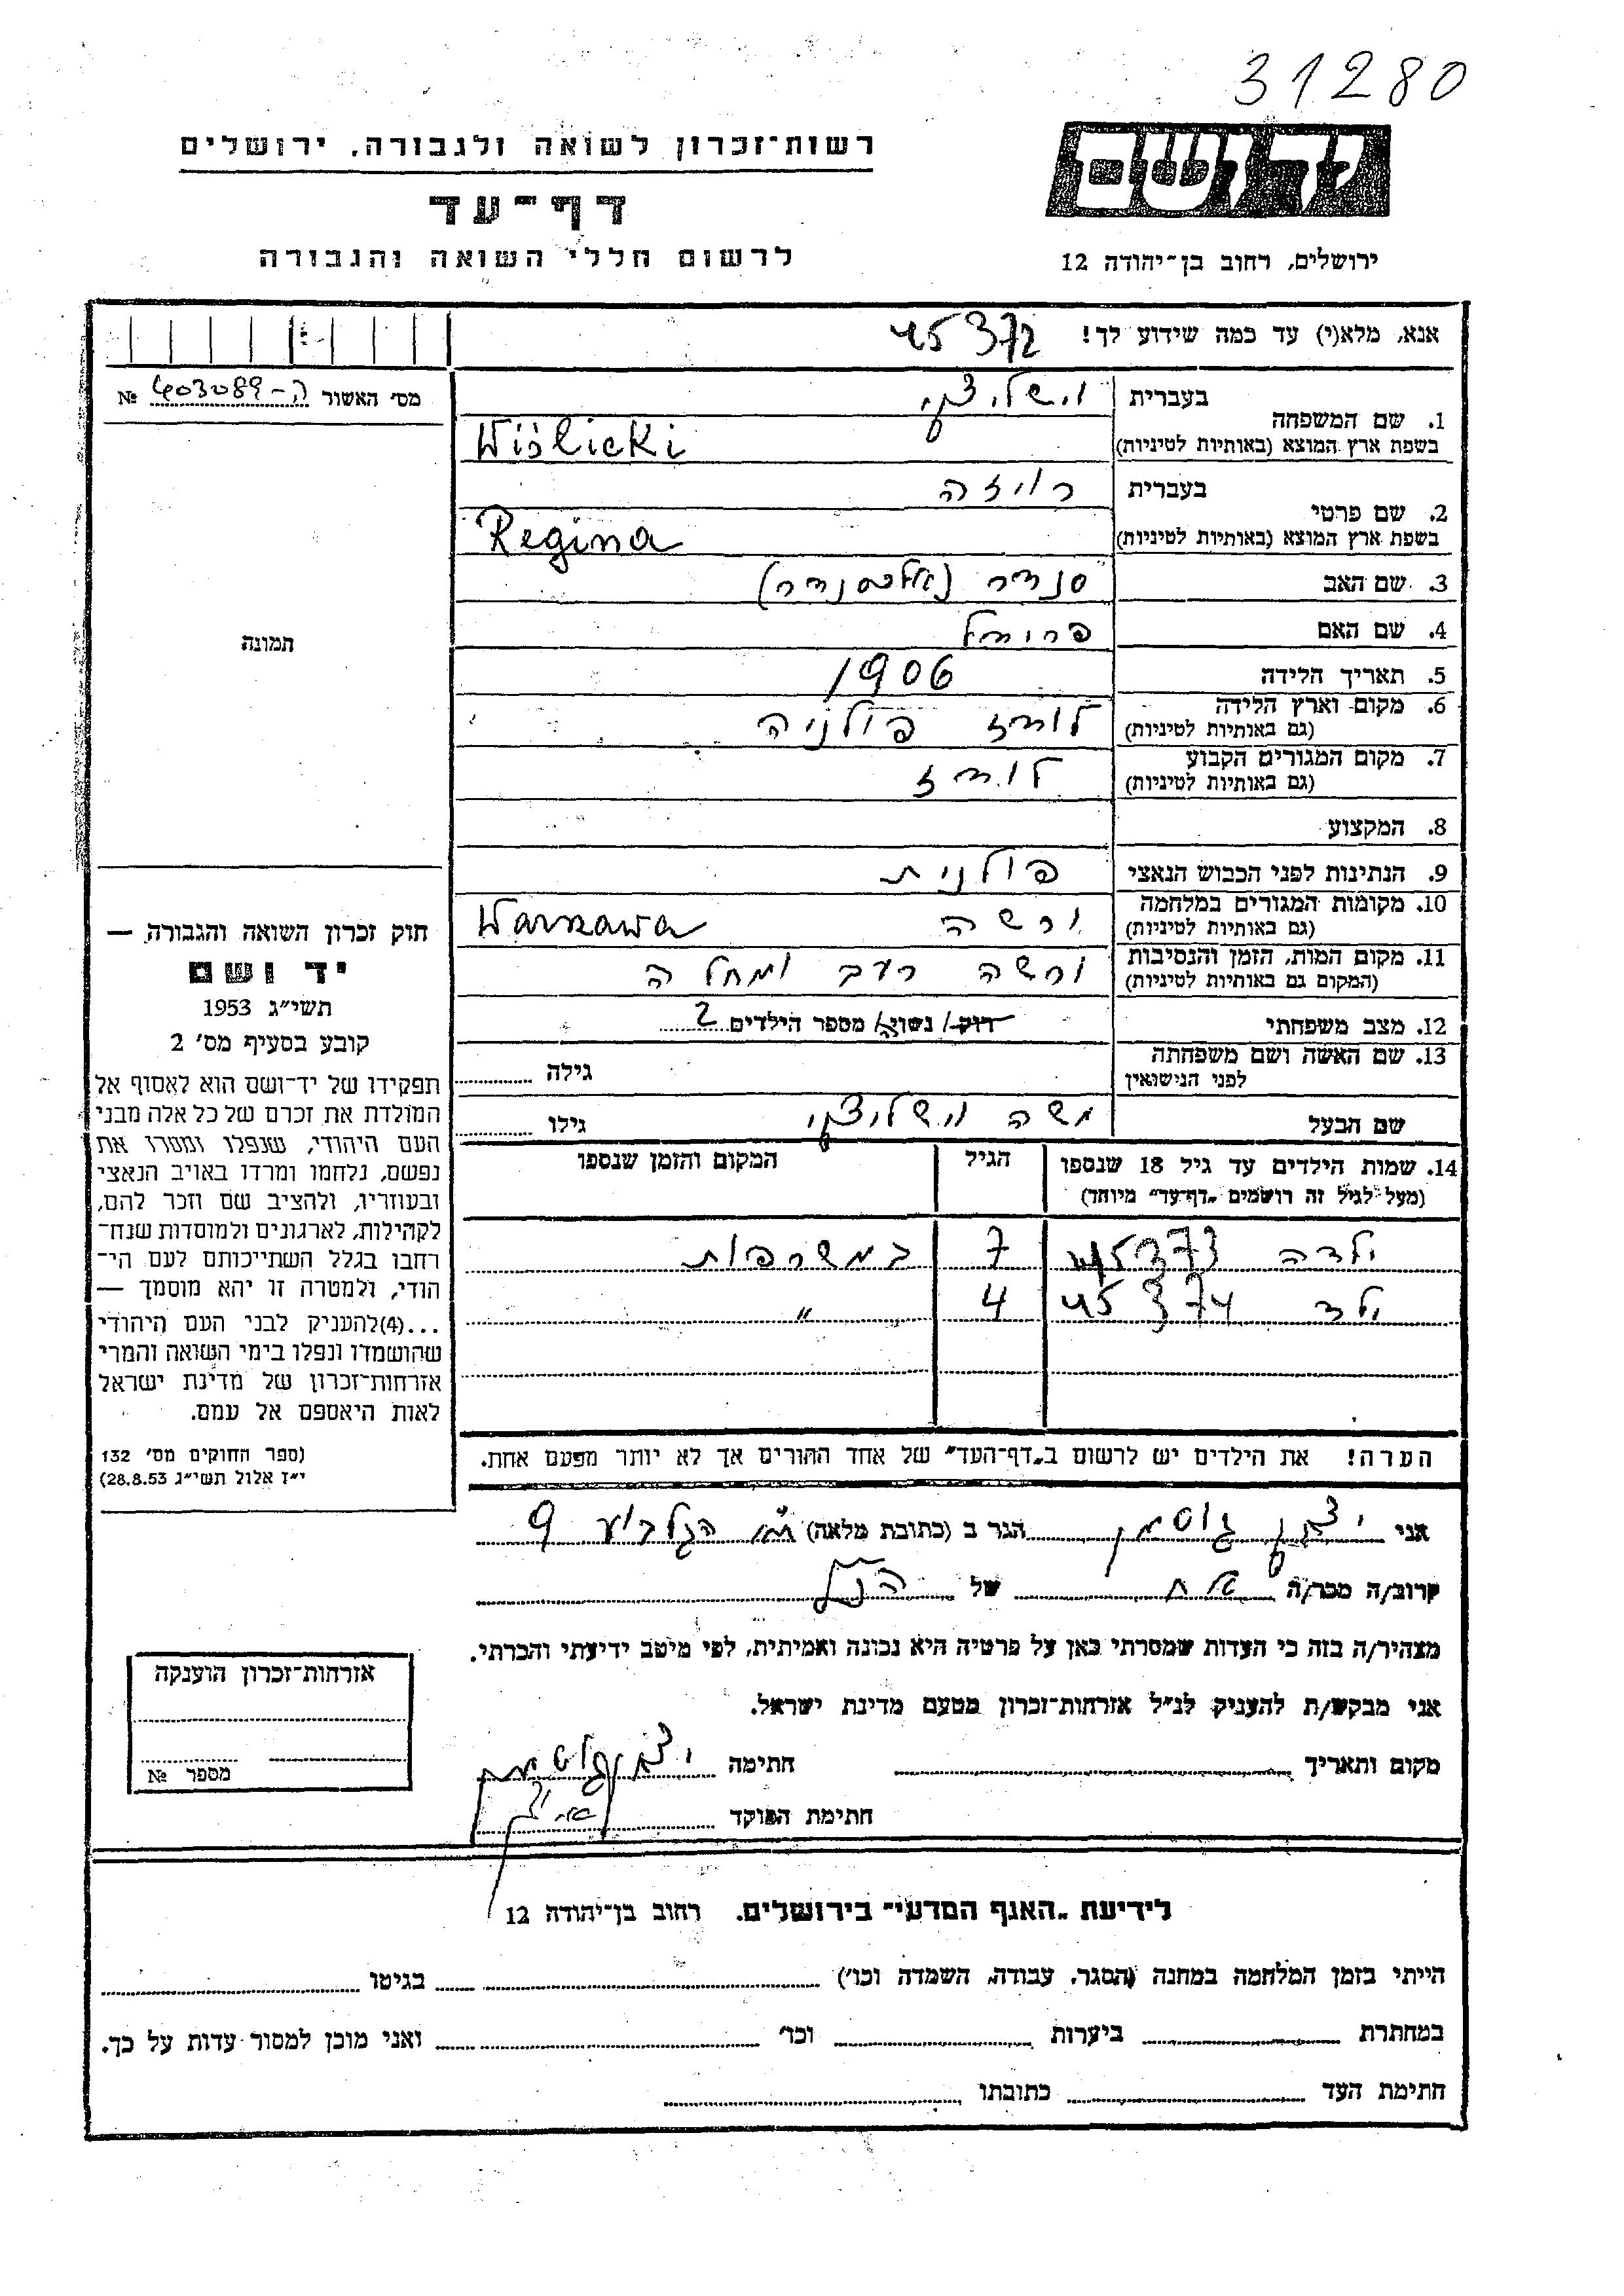 31280
יד ושם
רשות־זכרון לשואה ולגבורה, ירושלים
דף־עד
לרשום חללי השואה והגבורה
ירושלים, רחוב בן־יהודה 12
אנא, מלא(י) עד כמה שידוע לך! 45372
מס׳ האשור ה-403089 №
תמונה
1. שם המשפחה
בעברית וישליצקי
בשפת ארץ המוצא (באותיות לטיניות) Wiślicki
2. שם פרטי
בעברית רויזה
בשפת ארץ המוצא (באותיות לטיניות) Regina
3. שם האב סנדר (אלכסנדר)
4. שם האם
5. תאריך הלידה 1906
6. מקום וארץ הלידה
(גם באותיות לטיניות) לודז פולניה
7. מקום המגורים הקבוע
(גם באותיות לטיניות) לודז
8. המקצוע
9. הנתינות לפני הכבוש הנאצי פולנית
10. מקומות המגורים במלחמה
(גם באותיות לטיניות) ורשה Warszawa
11. מקום המות, הזמן והנסיבות
(המקום גם באותיות לטיניות) ורשה רעב ומחלה
12. מצב משפחתי רוק/ נשוי/ מספר הילדים 2
13. שם האשה ושם משפחתה
לפני הנישואין גילה
שם הבעל משה וישליצקי גילו
14. שמות הילדים עד גיל 18 שנספו
(מעל לגיל זה רושמים „דף־עד״ מיוחד) הגיל המקום והזמן שנספו
ילדה 45373 7 במשרפות
ילד 45374 4 "
הערה! את הילדים יש לרשום ב„דף־העד״ של אחד ההורים אך לא יותר מפעם אחת.
חוק זכרון השואה והגבורה —
יד ושם
תשי״ג 1953
קובע בסעיף מס׳ 2
תפקידו של יד־ושם הוא לאסוף אל
המולדת את זכרם של כל אלה מבני
העם היהודי, שנפלו ומסרו את
נפשם, נלחמו ומרדו באויב הנאצי
ובעוזריו, ולהציב שם וזכר להם,
לקהילות, לארגונים ולמוסדות שנח־
רבו בגלל השתייכותם לעם הי־
הודי, ולמטרה זו יהא מוסמך —
...(4)להעניק לבני העם היהודי
שהושמדו ונפלו בימי השואה והמרי
אזרחות־זכרון של מדינת ישראל
לאות היאספם אל עמם.
(ספר החוקים מס׳ 132
י״ז אלול תשי״ג 28.8.53)
אני יצחק גוטמן הגר ב (כתובת מלאה) ת״א הגלבוע 9
קרוב/ה מכר/ה של הנ״ל
מצהיר/ה בזה כי העדות שמסרתי כאן על פרטיה היא נכונה ואמיתית, לפי מיטב ידיעתי והכרתי.
אני מבקש/ת להעניק לנ״ל אזרחות־זכרון מטעם מדינת ישראל.
מקום ותאריך חתימה יצחק גוטמן
חתימת הפוקד
אזרחות־זכרון הוענקה
מספר №
לידיעת „האגף המדעי״ בירושלים. רחוב בן־יהודה 12
הייתי בזמן המלחמה במחנה (הסגר, עבודה, השמדה וכו׳) בגיטו
במחתרת ביערות וכו׳ ואני מוכן למסור עדות על כך.
חתימת העד כתובתו